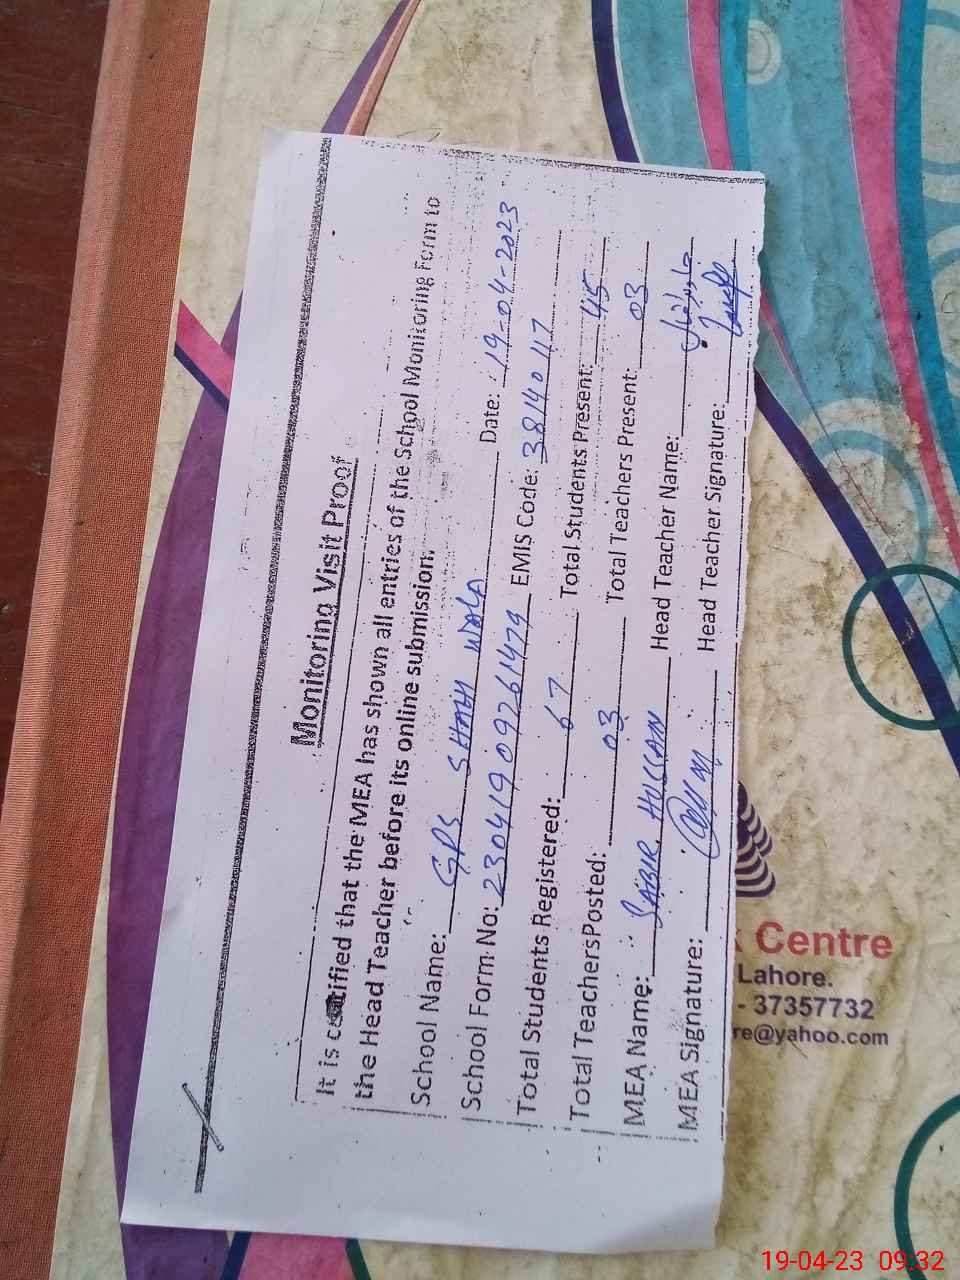 Monitoring Visit Proof
It is certified that the MEA has shown all entries of the School Monitoring Form to
the Head Teacher before its online submission.
School Name: GPS SHAH WALA Date: 19-04-2023
School Form No: 23041909261479 EMIS Code: 38140117
Total Students Registered: 67 Total Students Present: 45
Total Teachers Posted: 03 Total Teachers Present: 03
MEA Name: SABIR HUSSAN Head Teacher Name:
MEA Signature: Head Teacher Signature:
Centre
Lahore.
- 37357732
re@yahoo.com
19-04-23 09:32